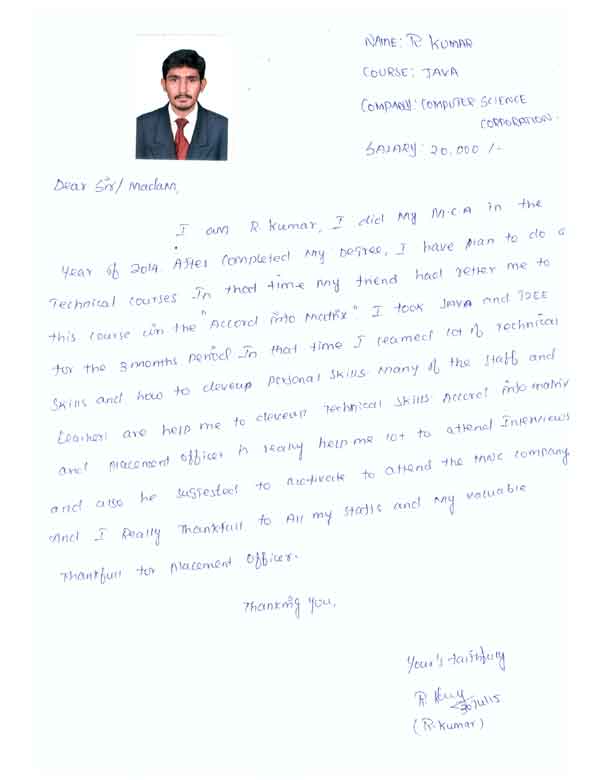 NAME: R. KUMAR
COURSE: JAVA
COMPANY: COMPUTER SCIENCE
CORPORATION.
SALARY: 20,000 /-
Dear Sir/ Madam,
I am R. Kumar, I did My M.C.A in the
Year of 2014. After completed My Degree, I have plan to do a
Technical courses In that time My friend had refer me to
this course in the "Accord info Matrix" I took JAVA and J2EE
for the 3 months period In that time I learned lot of Technical
Skills and how to develup personal skills. Many of the staff and
teachers are help me to develeup Technical Skills. Accord info matrix
and placement officer is really help me lot to attend Interviews
and also he suggested to motivate to attend the MNC company
And I Really Thankfull to All my staffs and My valuable
Thankfull for placement officer.
Thanking You,
Your's faithfully
R.
30/Jul/15
(R. Kumar)